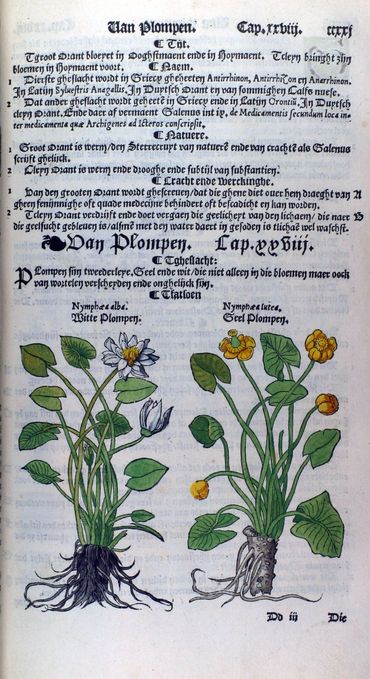 Van Plompen. Cap.xxviij. ccxxj
¶ Tijt.
Tgroot Orant bloeyet in Ooghstmaent ende in Hoymaent. Tcleyn bringht zijn
bloemen in Hoymaent voort.
¶ Naem.
1 Dierste gheslacht wordt in Griecx gheheeten Antirrhinon, Antirrhizon en Anarrhinon.
In Latijn Sylvestris Anagallis. In Duytsch Orant en van sommighen Calfs nuese.
2 Dat ander gheslacht wordt geheetē in Griecx ende in Latijn Orontiū. In Duytsch
cleyn Orant. Ende daer af vermaent Galenus int ix. de Medicamentis secundum loca in-
ter medicamenta quæ Archigenes ad Icteros conscripsit.
¶ Natuere.
1 Groot Orant is werm/den Sterrecruyt van natuerē ende van crachtē als Galenus
scrijft ghelijck.
2 Cleyn Orant is werm ende drooghe ende subtijl van substantien.
¶ Cracht ende Werckinghe.
1 Van den grooten Orant wordt ghescreuen/dat die ghene diet ouer hem draeght van A
gheen fenijnnighe oft quade medecijne behindert oft bescadicht en kan worden.
2 Tcleyn Orant verdrijft ende doet vergaen die geelheyt van den lichaem/ die naer B
die geelsucht gebleuen is/alsmē met den water daert in gesoden is tlichaē wel wascht.
Van Plompen. Cap.xxviij.
¶ Tgheslacht:
Plompen sijn tweederleye. Geel ende wit/die niet alleen in die bloemen maer oock
van wortelen verscheyden ende onghelijck sijn.
¶ Tfatsoen
Nymphæa alba. Nymphæa lutea.
Witte Plompen. Geel Plompen.
Dd iij Die